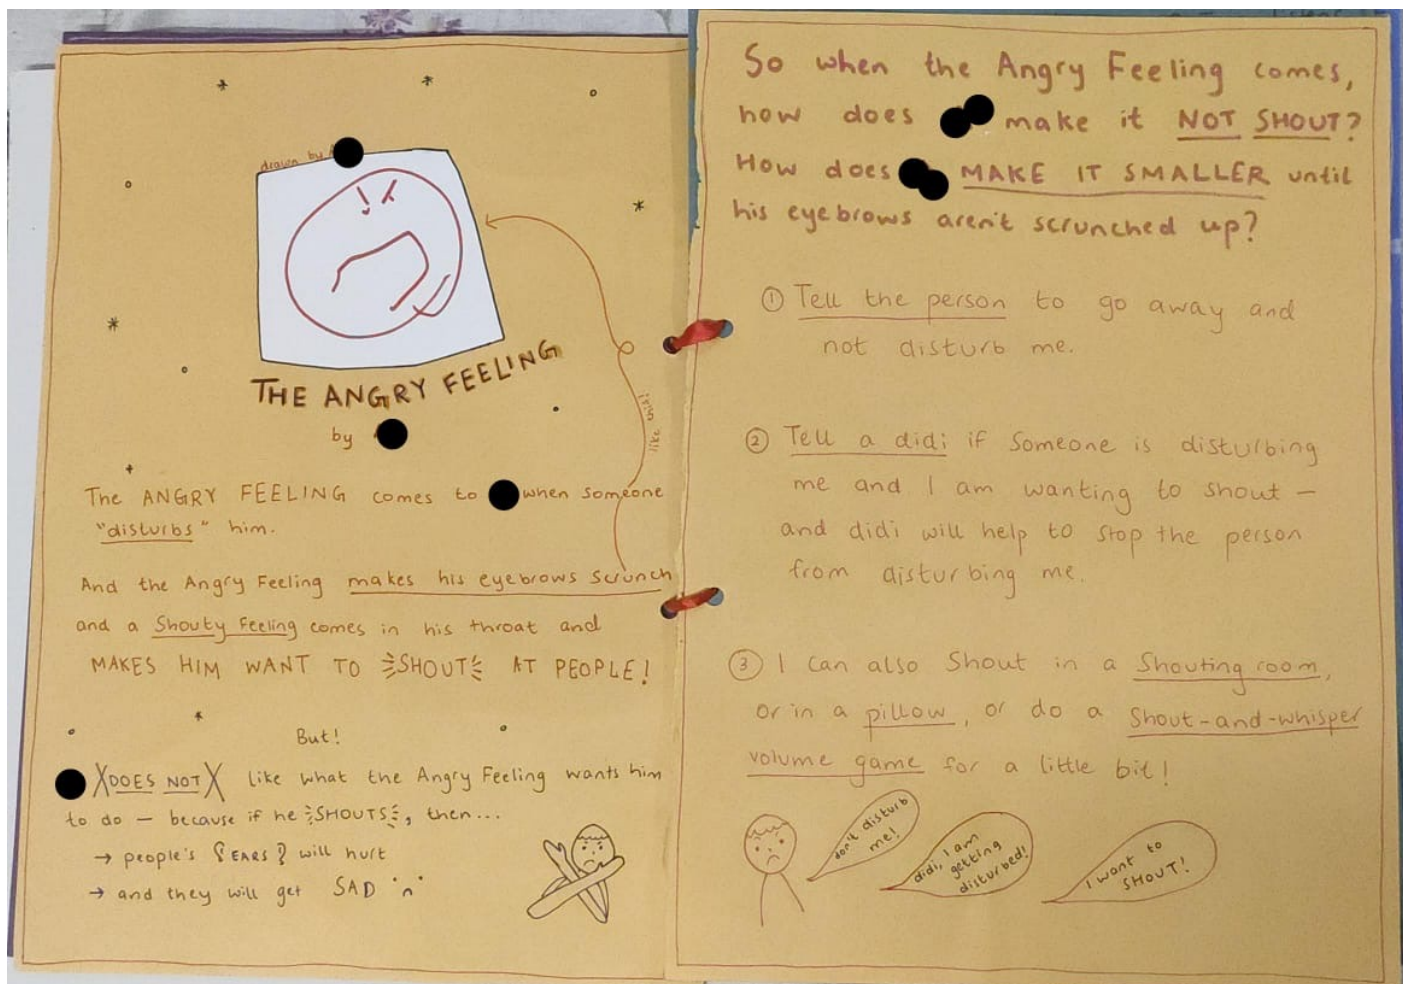 drawn by
THE ANGRY FEELING
by
like this!
The ANGRY FEELING comes to when someone
"disturbs" him.
And the Angry Feeling makes his eyebrows scrunch
and a Shouty Feeling comes in his throat and
MAKES HIM WANT TO SHOUT AT PEOPLE!
But!
DOES NOT like what the Angry Feeling wants him
to do — because if he SHOUTS, then...
→ people's EARS will hurt
→ and they will get SAD
So when the Angry Feeling comes,
how does make it NOT SHOUT?
How does MAKE IT SMALLER until
his eyebrows aren't scrunched up?
① Tell the person to go away and
not disturb me.
② Tell a didi if someone is disturbing
me and I am wanting to shout —
and didi will help to stop the person
from disturbing me.
③ I can also shout in a shouting room,
or in a pillow, or do a shout-and-whisper
volume game for a little bit!
don't disturb
me!
didi, I am
getting
disturbed!
I want to
SHOUT!